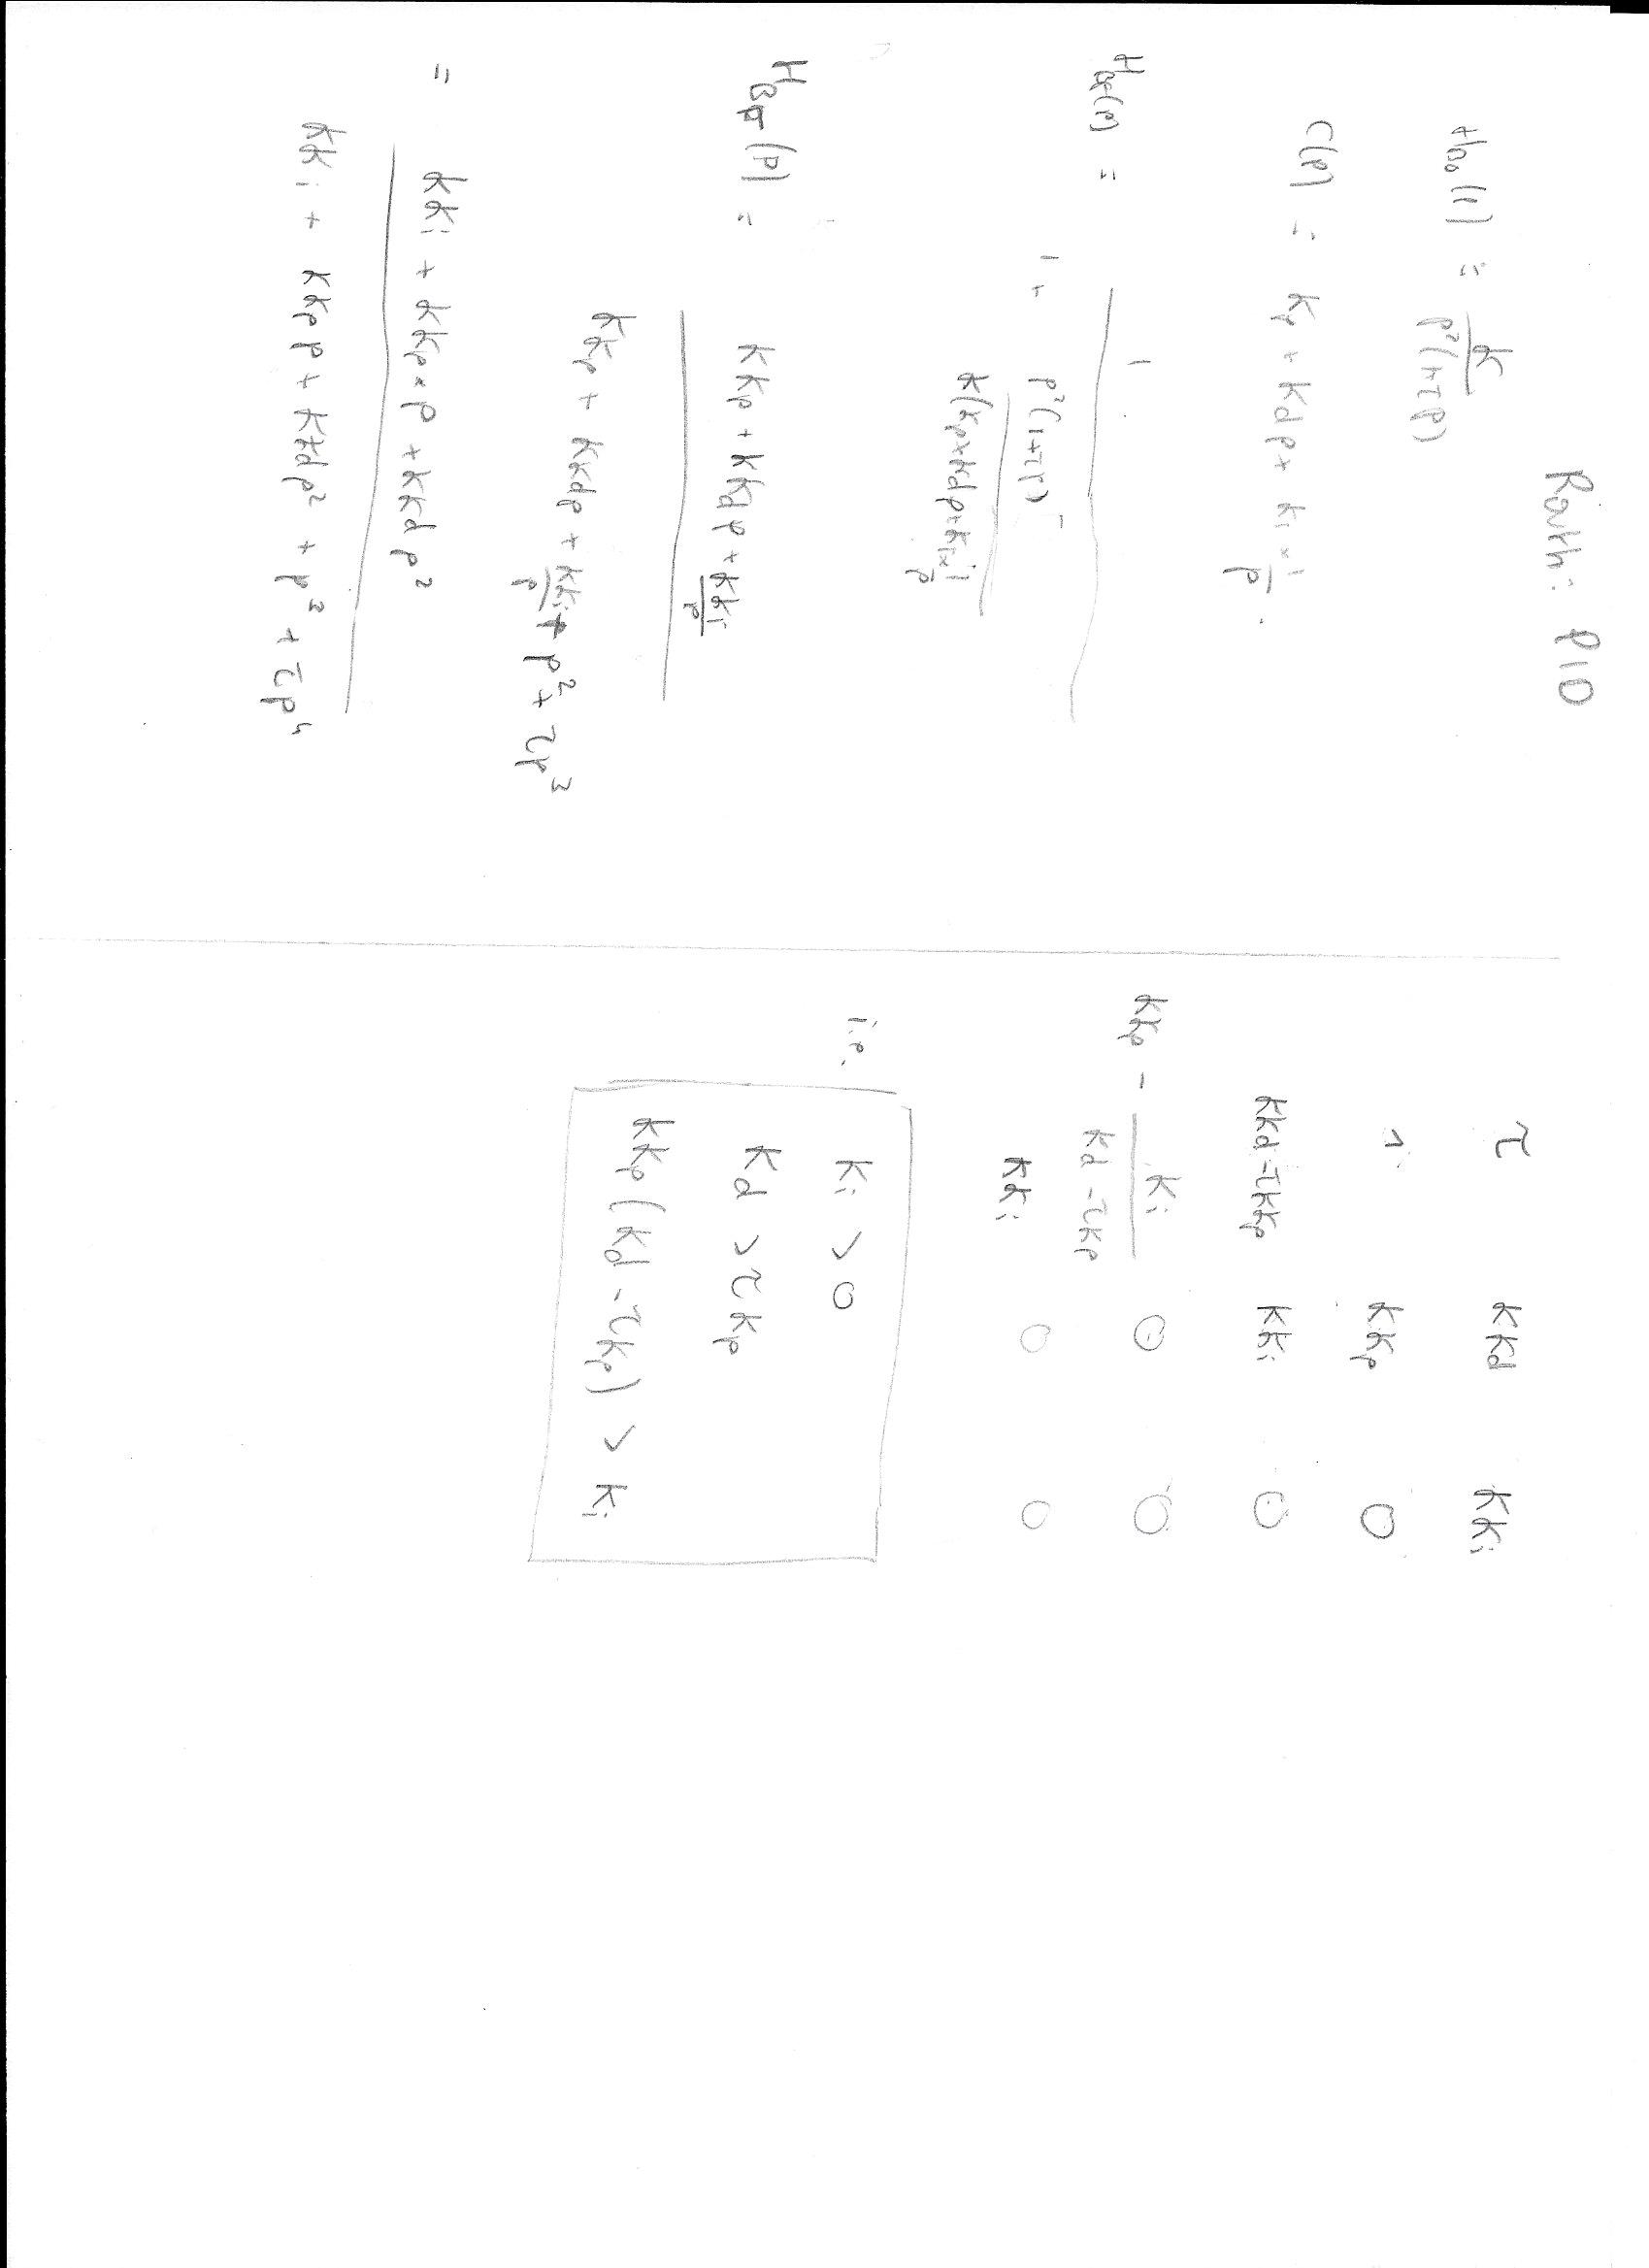 Routh: PID
H_BO(p) = K / p²(1+τp)
C(p) = Kp + Kd p + Ki × 1/p
H_BF(p) = 1 / (1 + p²(1+τp) / K(Kp+Kd p+Ki×1/p))
H_BF(p) = (KKp + KKd p + KKi/p) / (KKp + KKd p + KKi/p + p² + τp³)
= (KKi + KKp × p + KKd p²) / (KKi + KKp p + KKd p² + p³ + τp⁴)
τ KKd KKi
1 KKp 0
KKd - τKKp KKi 0
KKp - Ki / (Kd - τKp) 0 0
KKi 0 0
i.e. Ki > 0
Kd > τKp
KKp (Kd - τKp) > Ki